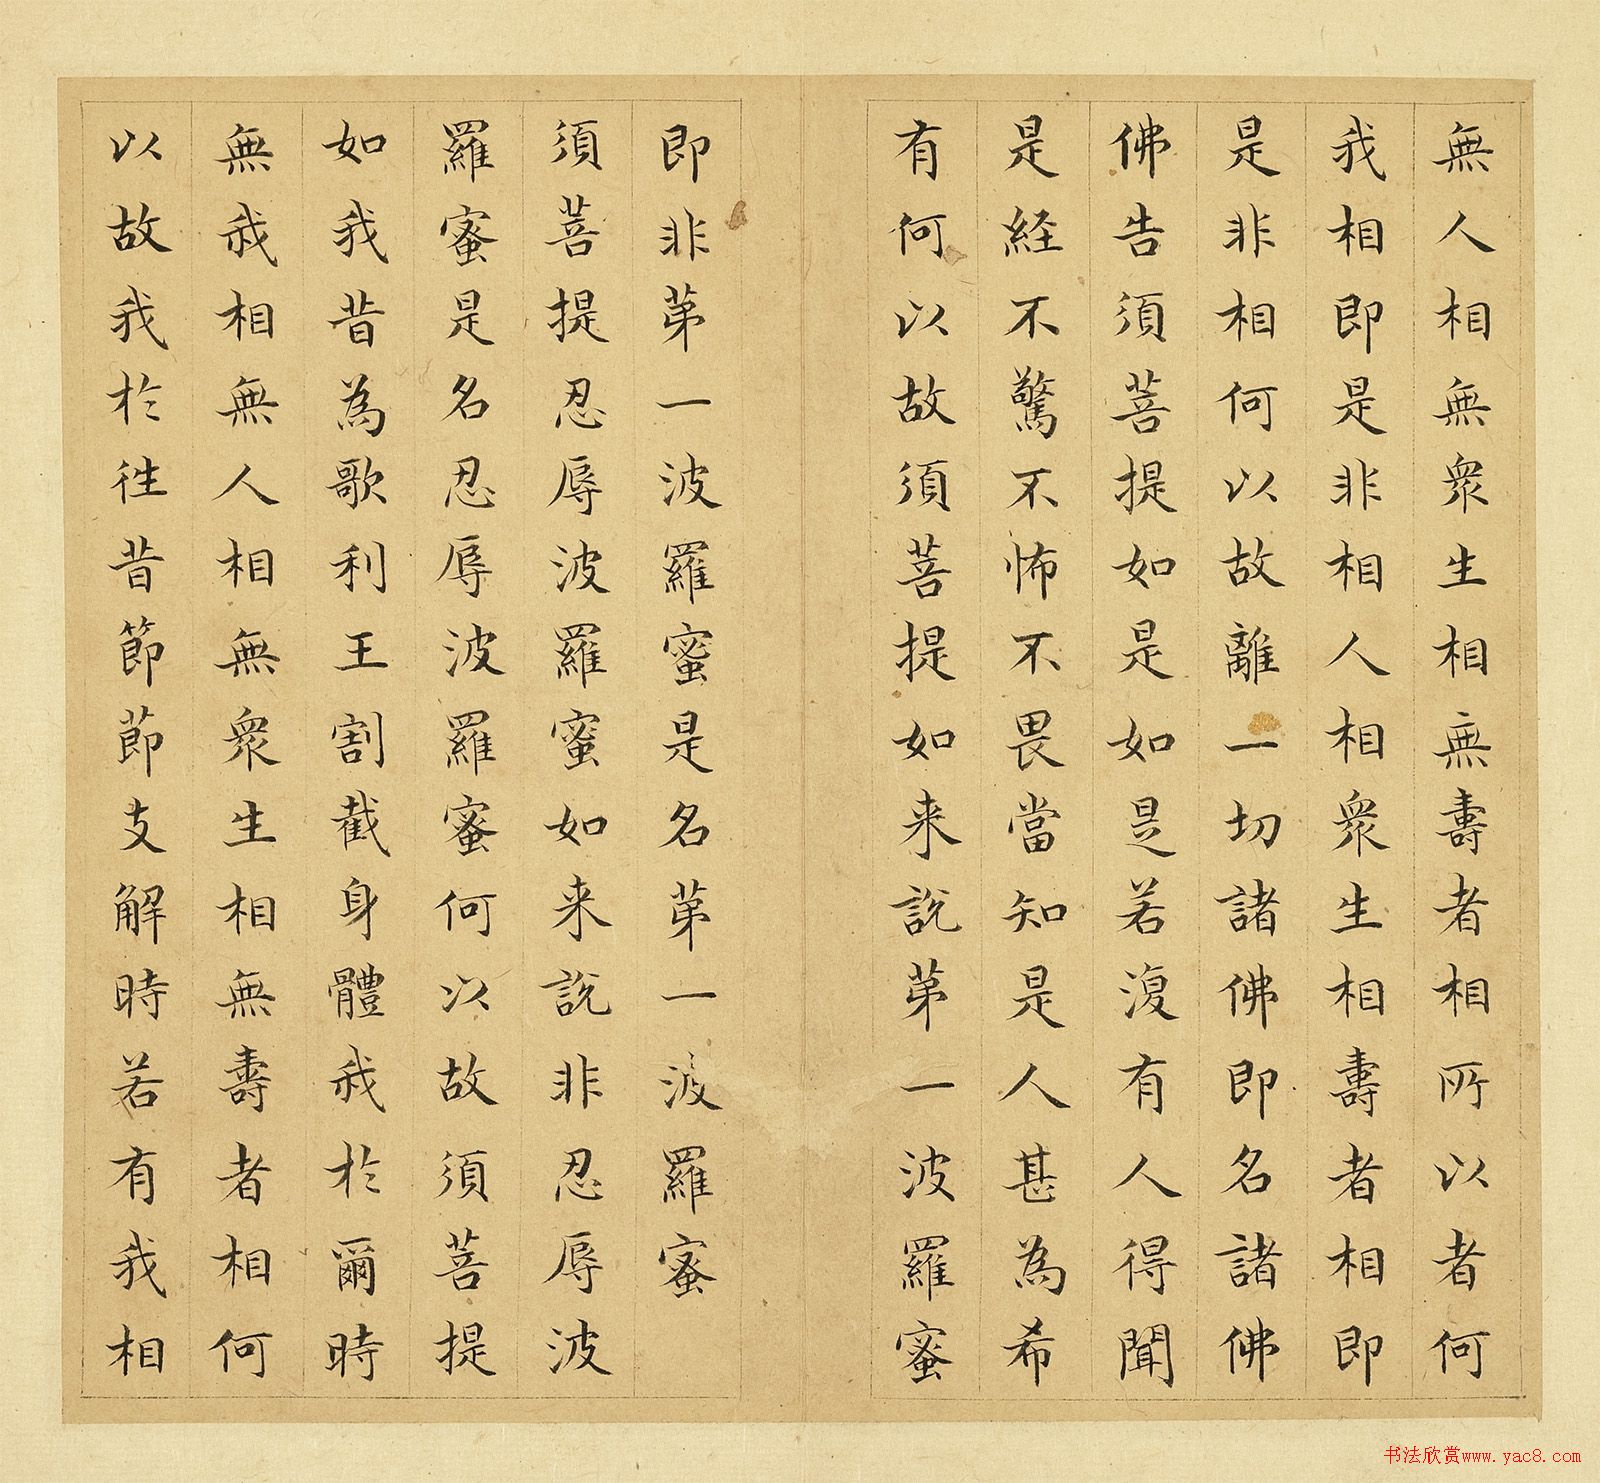 無人相無衆生相無壽者相所以者何
我相即是非相人相衆生相壽者相即
是非相何以故離一切諸佛即名諸佛
佛告須菩提如是如是若復有人得聞
是経不驚不怖不畏當知是人甚為希
有何以故須菩提如来說苐一波羅蜜
即非苐一波羅蜜是名苐一波羅蜜
須菩提忍辱波羅蜜如来說非忍辱波
羅蜜是名忍辱波羅蜜何以故須菩提
如我昔為歌利王割截身體我於爾時
無我相無人相無衆生相無壽者相何
以故我於徃昔節節支解時若有我相
书法欣赏www.yac8.com